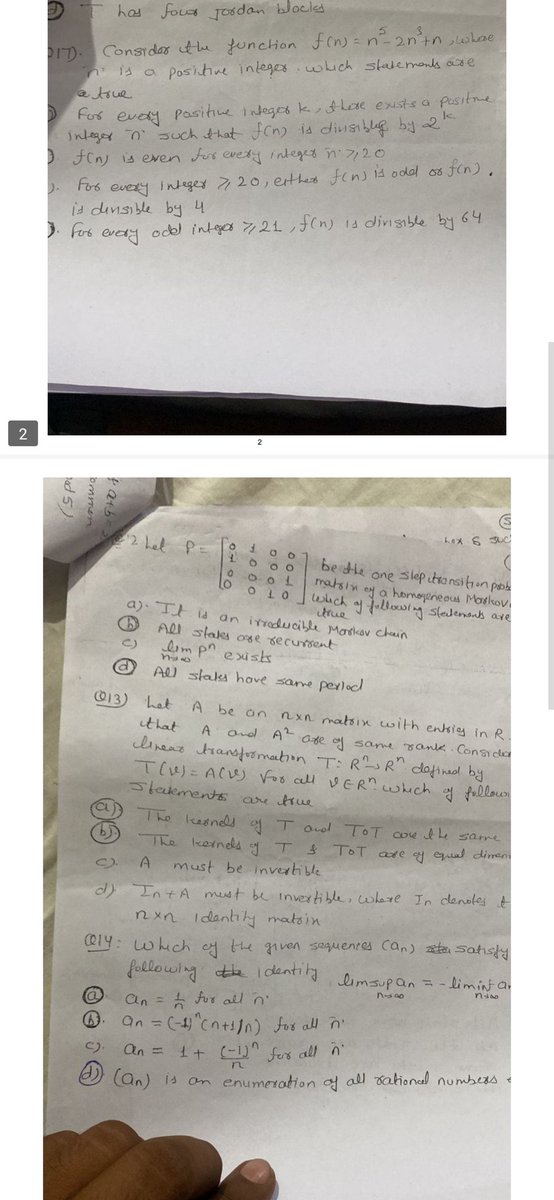 T has four Jordan blocks
017). Consider the function f(n) = n⁵ - 2n³ + n, where
'n' is a positive integer. which statements are
true
For every positive integer k, there exists a positive
integer 'n' such that f(n) is divisible by 2ᵏ
f(n) is even for every integer n ≥ 20
For every integer ≥ 20, either f(n) is odd or f(n).
is divisible by 4
For every odd integer ≥ 21, f(n) is divisible by 64
2
2
Let P = [0 1 0 0
1 0 0 0
0 0 0 1
0 0 1 0]
be the one step transition prob
matrix of a homogeneous Markov
which of following statements are
true
a). It is an irreducible Markov chain
(b) All states are recurrent
c) lim n→∞ Pⁿ exists
(d) All states have same period
Q13) Let A be an n×n matrix with entries in R.
that A and A² are of same rank. Consider
linear transformation T: Rⁿ→Rⁿ defined by
T(v) = A(v) for all v ∈ Rⁿ. which of follow
statements are true
(a) The kernels of T and TOT are the same
(b) The kernels of T & TOT are of equal dimen
c). A must be invertible
d) In + A must be invertible, where In denotes t
n×n identity matrix
Q14: which of the given sequences (an) satisfy
following identity limsup an n→∞ = - liminf an n→∞
(a) an = 1/n for all 'n'
(b). an = (-1)ⁿ(n+1/n) for all 'n'
c). an = 1 + (-1)ⁿ/n for all 'n'
(d) (an) is an enumeration of all rational numbers